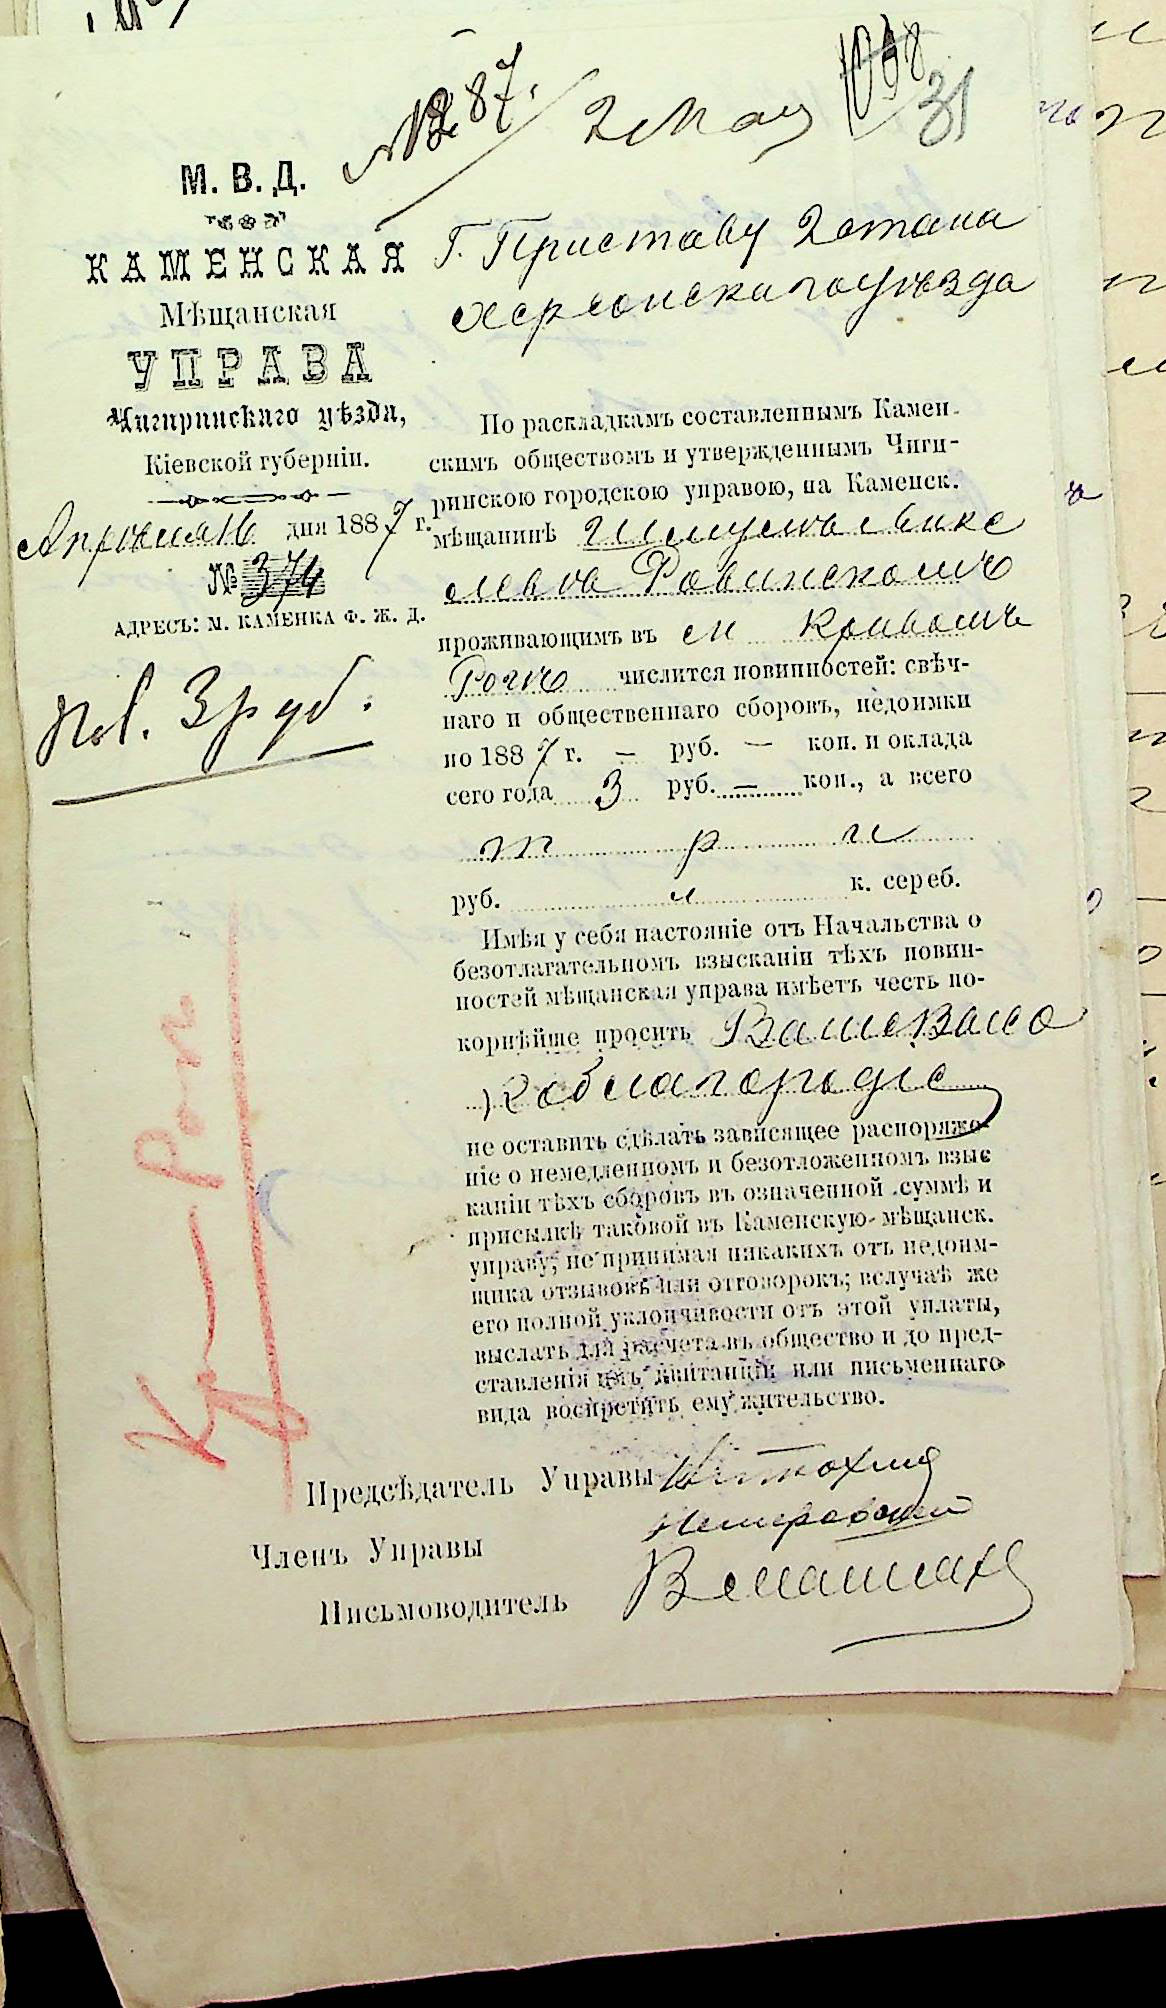 № 87.
2 Мая
31
М. В. Д.
КАМЕНСКАЯ
Мѣщанская
УПРАВА
Чигиринскаго уѣзда,
Кіевской губерніи.
Апрѣля 16 дня 1887 г.
№ 374
АДРЕСЪ: М. КАМЕНКА Ф. Ж. Д.
пов. 3 руб.
Г. Приставу 2 стана
Херсонскаго уѣзда
По раскладкамъ составленнымъ Камен-
скимъ обществомъ и утвержденнымъ Чиги-
ринскою городскою управою, на Каменск.
мѣщанинѣ
Ровинскомъ
проживающимъ въ м Кривомъ
Рогѣ числится повинностей: свѣч-
наго и общественнаго сборовъ, недоимки
по 1887 г. — руб. — коп. и оклада
сего года 3 руб. — коп., а всего
три
руб. к. сереб.
Имѣя у себя настояніе отъ Начальства о
безотлагательномъ взысканіи тѣхъ повин-
ностей мѣщанская управа имѣетъ честь по-
корнѣйше просить Ваше Высо
коблагородіе
не оставить сдѣлать зависящее распоряже-
ніе о немедленномъ и безотложенномъ взыс
каніи тѣхъ сборовъ въ означенной суммѣ и
присылкѣ таковой въ Каменскую мѣщанск.
управу, не принимая никакихъ отъ недоим-
щика отзывовъ или отговорокъ; вслучаѣ же
его полной уклончивости отъ этой уплаты,
выслать для расчета въ общество и до пред-
ставленія имъ квитанціи или письменнаго
вида воспретить ему жительство.
Кр— Рог
Предсѣдатель Управы
Членъ Управы
Письмоводитель